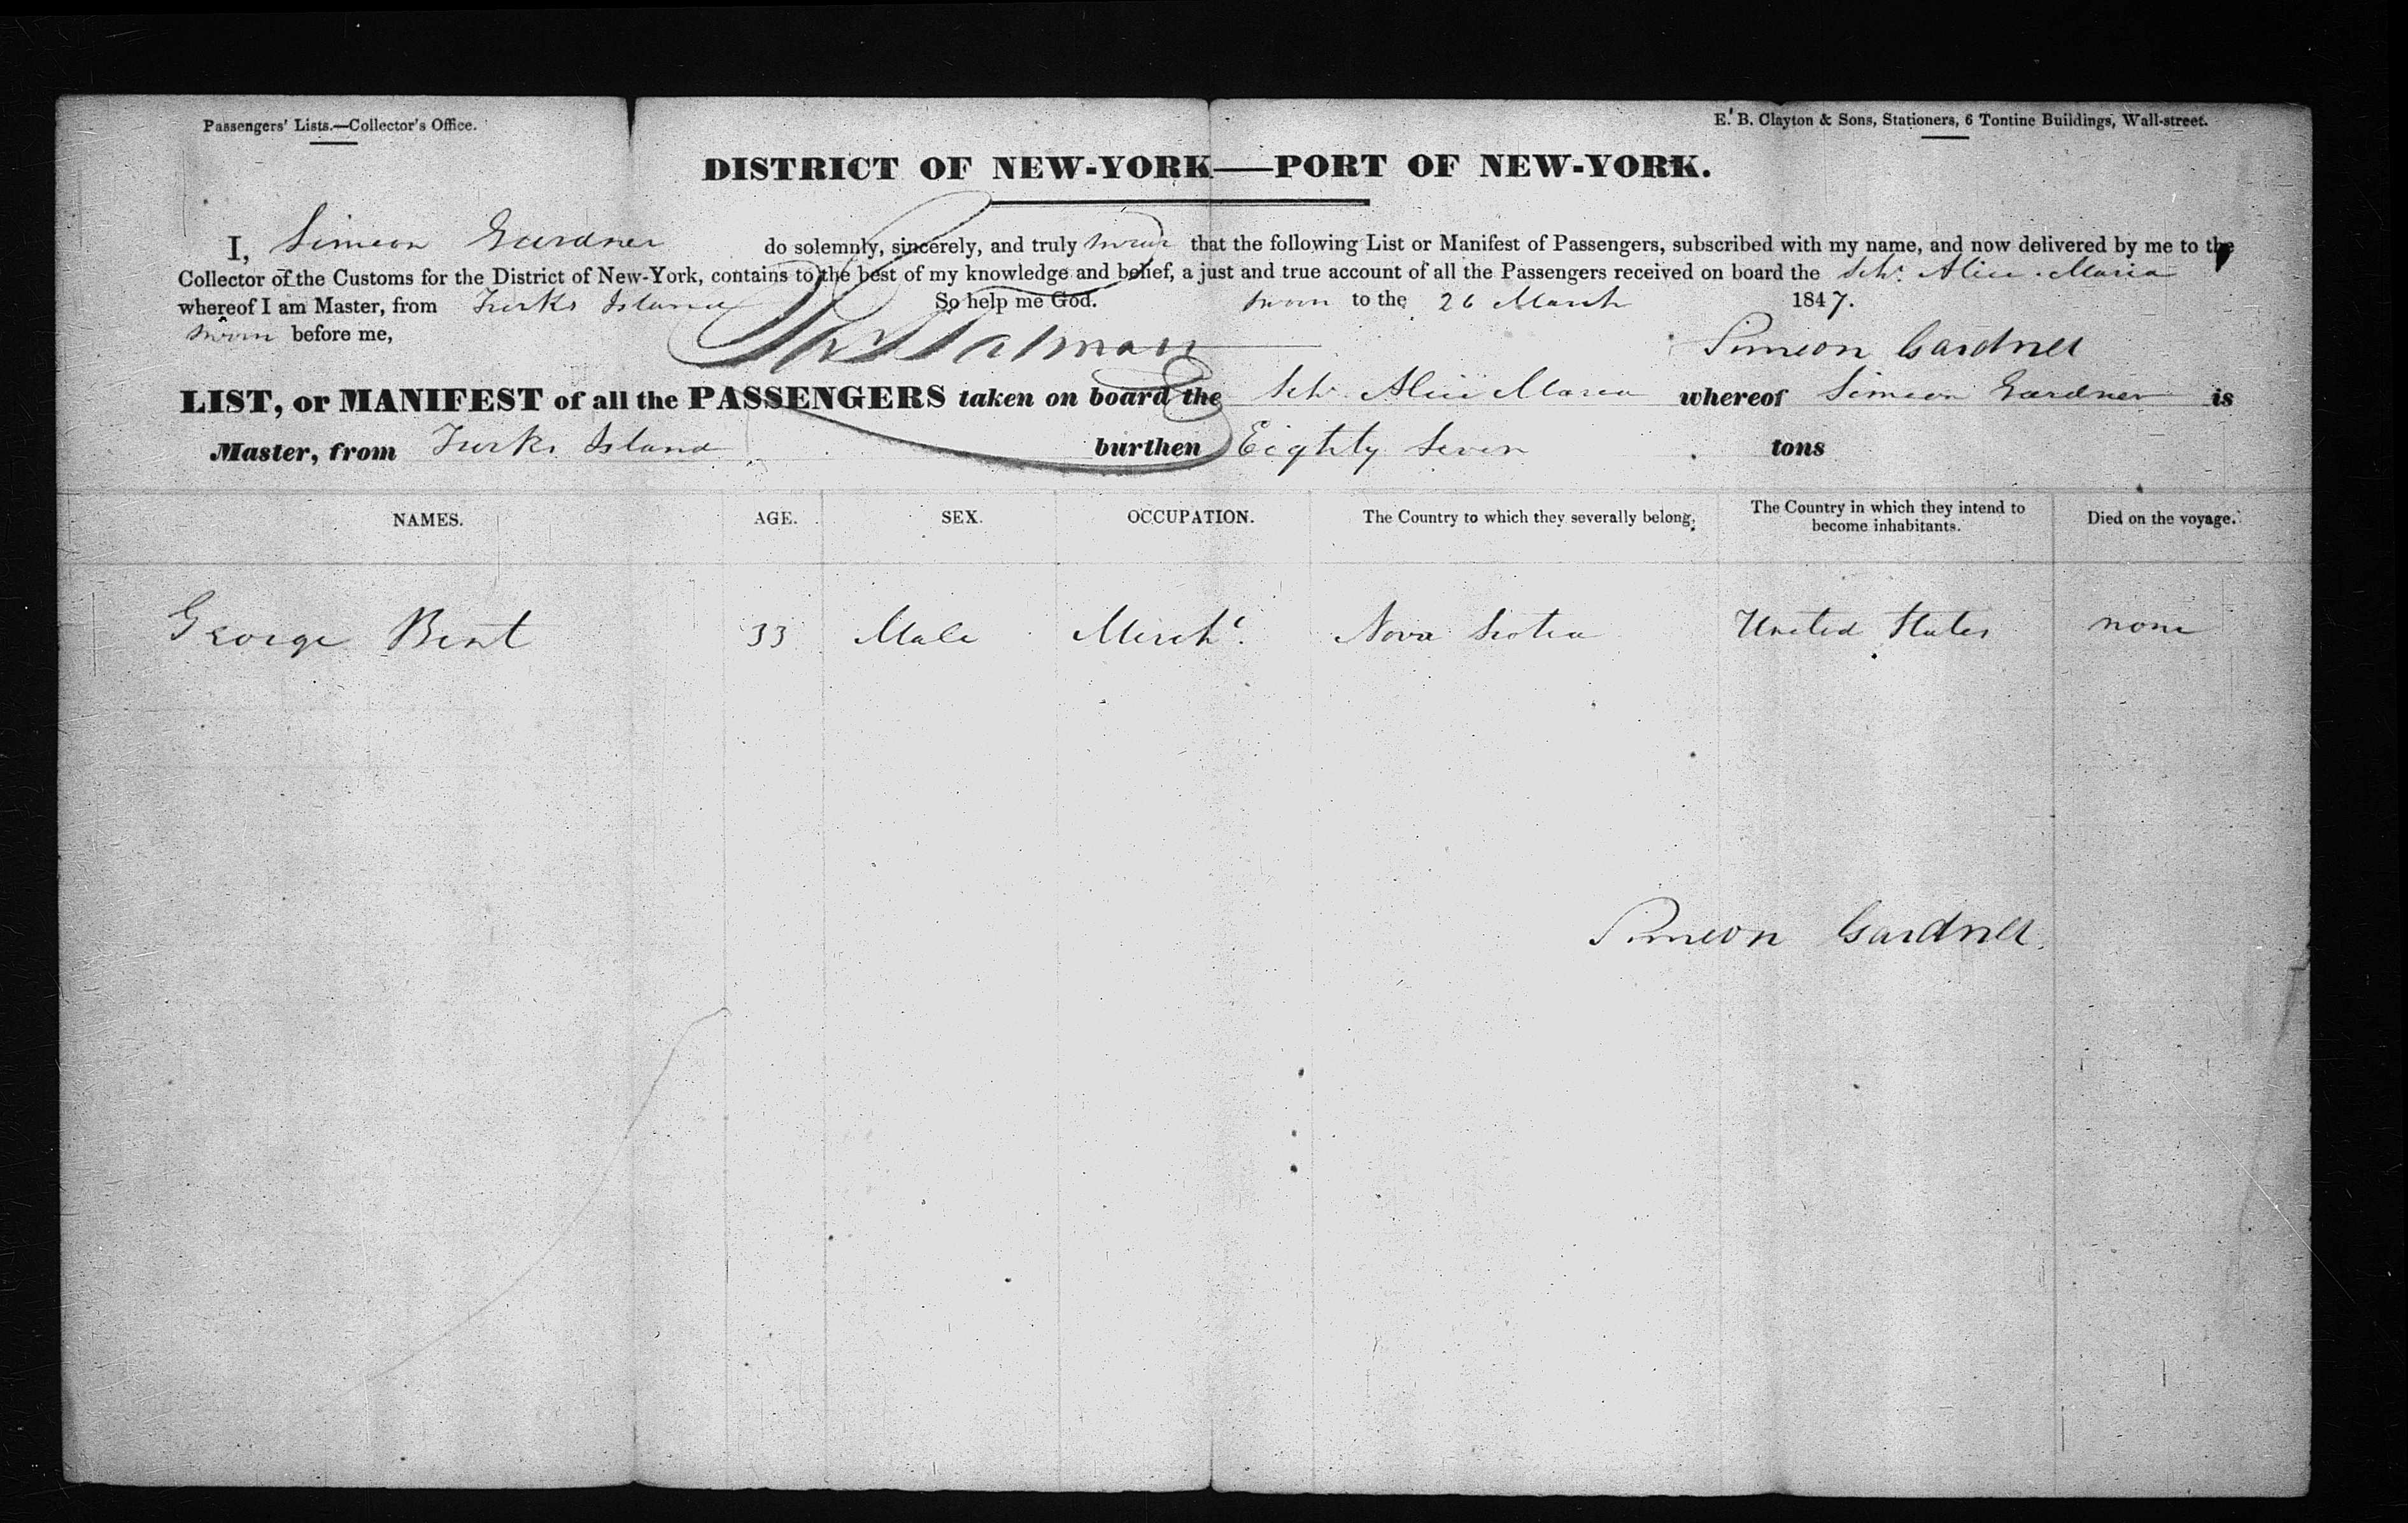 Passengers' Lists.—Collector's Office.
E. B. Clayton & Sons, Stationers, 6 Tontine Buildings, Wall-street.
DISTRICT OF NEW-YORK—PORT OF NEW-YORK.
I, Simeon Gardner do solemnly, sincerely, and truly swear that the following List or Manifest of Passengers, subscribed with my name, and now delivered by me to the
Collector of the Customs for the District of New-York, contains to the best of my knowledge and belief, a just and true account of all the Passengers received on board the Schr. Alice Maria
whereof I am Master, from Turks Island So help me God. Sworn to the 26 March 1847.
Sworn before me,
Simeon Gardner
LIST, or MANIFEST of all the PASSENGERS taken on board the Schr. Alice Maria whereof Simeon Gardner is
Master, from Turks Island burthen Eighty Seven tons
NAMES. AGE. SEX. OCCUPATION. The Country to which they severally belong. The Country in which they intend to become inhabitants. Died on the voyage.
George Bent 33 Male Mercht. Nova Scotia United States none
Simeon Gardner.